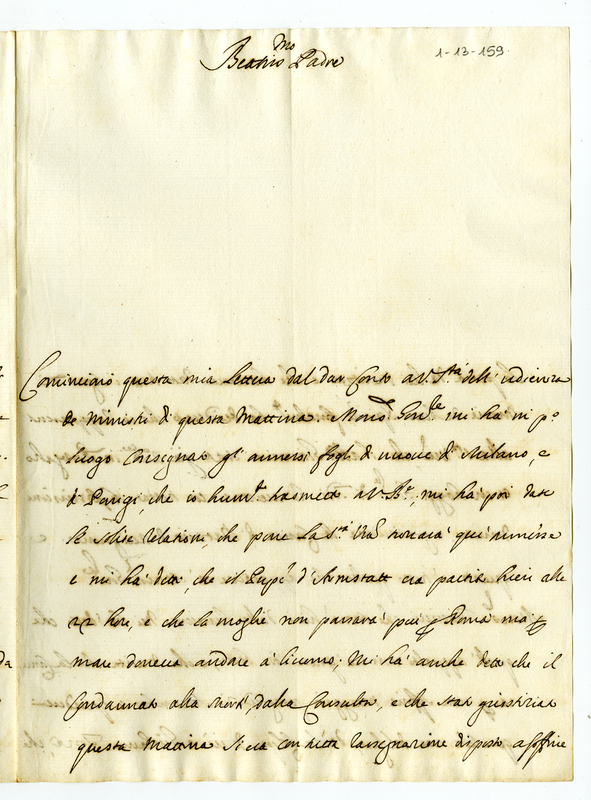 Beatmo Padre
1-13-159.
Cominciarò questa mia lettera dal dar Conto a V. Stà dell' udienza
de Ministri di questa Mattina. Monsr Gonle mi hà in po
luogo Consegnato gl' annessi fogli di nuove di Milano, e
di Parigi, che io humte trasmetto a V. Bne; mi hà poi date
le solite relationi, che pure la Stà Vra trovarà qui annesse
e mi hà detto, che il Prnpe d' Armstatt era partito hieri alle
22 hore, e che la moglie non passarà più p Roma ma p
mare doveva andare à Livorno; Mi hà anche detto che il
Condannato alla Morte, dalla Consulta, e che stato giustiziato
questa Mattina si era con tutta rassegnazione disposto a soffrire